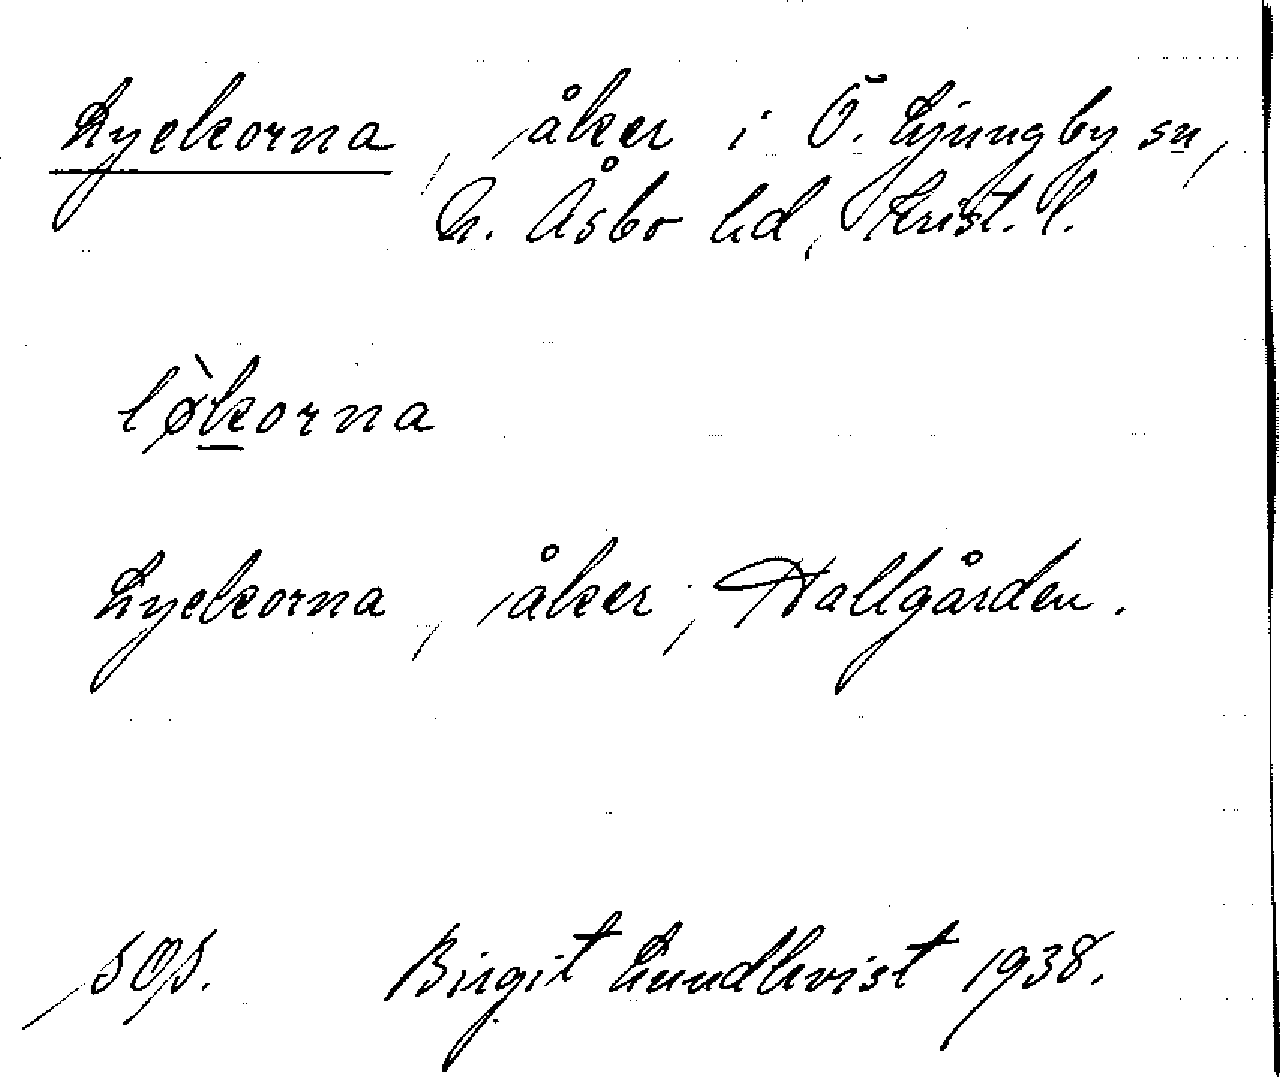 Lyckorna, åker i Ö. Ljungby sn,
N. Åsbo hd, Krist. l.
lø̀korna
Lyckorna, åker, Hallgården.
Birgit Lundkvist 1938.